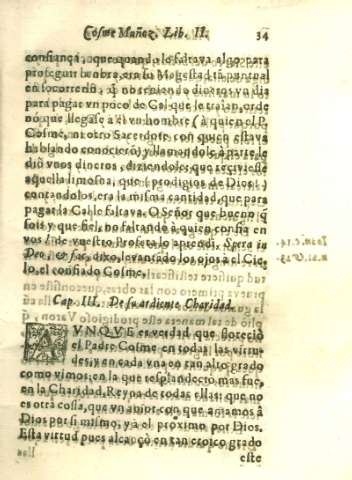 Cosme Muñoz, Lib. II. 34
confiança, que quando le faltava algo para
proseguir la obra, era su Magestad tã puntual
en socorrerla, q̃ no teniendo dineros vn dia
para pagar vn poco de Cal que le traian, orde
nó que llegasse a el vn hombre (à quien el P.
Cosme, ni otro Sacerdote, con quien estava
hablando conocierõ) y llamandole à parte le
diò vnos dineros, diziendole, que recviesse
aquella limosna, que (prodigios de Dios!)
contandolos, era la misma cantidad, que para
pagar la Calle faltava. O Señor que bueno q̃
sois y que fiel, no faltando à quien confia en
vos! de vuestro Profeta lo aprendi, Spera in
Deo, et fac, dixo, levantando los ojos à el Cie-
lo, el confiado Cosme.
Cap. III. De su ardiente Charidad.
AVNQVE es verdad que floreciò
el Padre Cosme en todas las virtu-
des, y en cada vna en tan alto grado
como vimos; en la que resplandeciò mas fue,
en la Charidad, Reyna de todas ellas: que no
es otra cosa, que vn amor con que amamos à
Dios por si mismo, y à el proximo por Dios.
Esta virtud pues alcançò en tan eroico grado
este